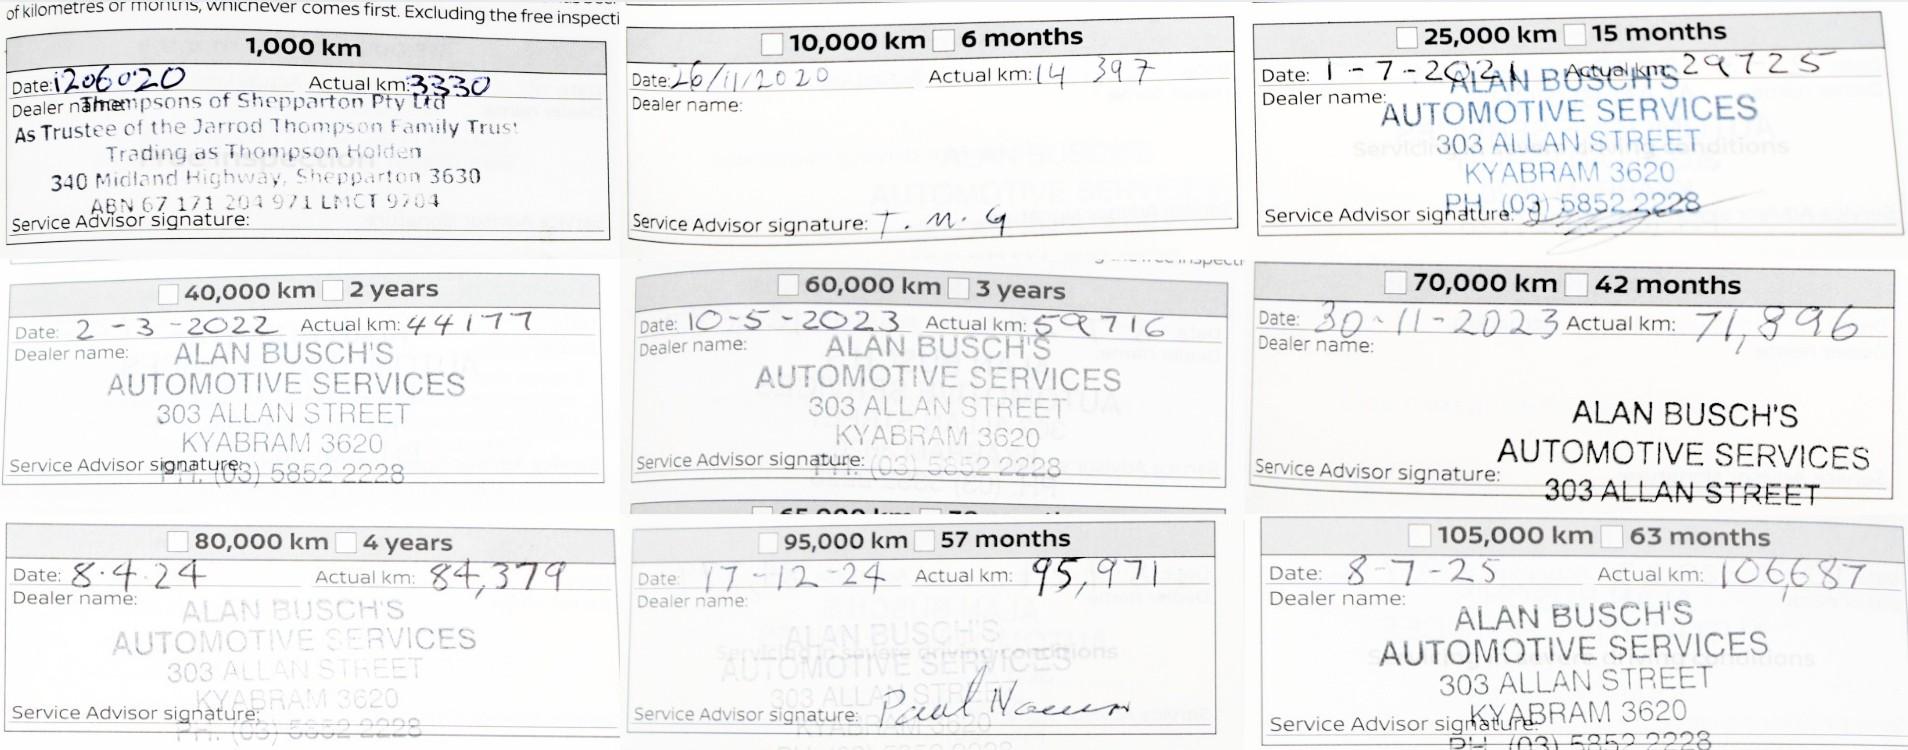 of kilometres or months, whichever comes first. Excluding the free inspecti
1,000 km
Date: 1206020 Actual km: 3330
Dealer name:
Thompsons of Shepparton Pty Ltd
As Trustee of the Jarrod Thompson Family Trust
Trading as Thompson Holden
340 Midland Highway, Shepparton 3630
ABN 67 171 204 971 LMCT 9704
Service Advisor signature:
10,000 km 6 months
Date: 26/11/2020 Actual km: 14 397
Dealer name:
Service Advisor signature: T. M. G
25,000 km 15 months
Date: 1-7-2021 Actual km: 29725
Dealer name:
ALAN BUSCH'S
AUTOMOTIVE SERVICES
303 ALLAN STREET
KYABRAM 3620
PH. (03) 5852 2228
Service Advisor signature:
40,000 km 2 years
Date: 2-3-2022 Actual km: 44177
Dealer name:
ALAN BUSCH'S
AUTOMOTIVE SERVICES
303 ALLAN STREET
KYABRAM 3620
Service Advisor signature:
PH. (03) 5852 2228
60,000 km 3 years
Date: 10-5-2023 Actual km: 59716
Dealer name:
ALAN BUSCH'S
AUTOMOTIVE SERVICES
303 ALLAN STREET
KYABRAM 3620
Service Advisor signature:
PH. (03) 5852 2228
70,000 km 42 months
Date: 30-11-2023 Actual km: 71,896
Dealer name:
ALAN BUSCH'S
AUTOMOTIVE SERVICES
Service Advisor signature:
303 ALLAN STREET
80,000 km 4 years
Date: 8.4.24 Actual km: 84,379
Dealer name:
ALAN BUSCH'S
AUTOMOTIVE SERVICES
303 ALLAN STREET
KYABRAM 3620
Service Advisor signature:
PH. (03) 5852 2228
95,000 km 57 months
Date: 17-12-24 Actual km: 95,971
Dealer name:
ALAN BUSCH'S
Servicing in severe driving conditions
AUTOMOTIVE SERVICES
303 ALLAN STREET
Service Advisor signature: Paul
KYABRAM 3620
PH. (03) 5852 2228
105,000 km 63 months
Date: 8-7-25 Actual km: 106,687
Dealer name:
ALAN BUSCH'S
AUTOMOTIVE SERVICES
303 ALLAN STREET
KYABRAM 3620
Service Advisor signature:
PH (03) 5852 2228